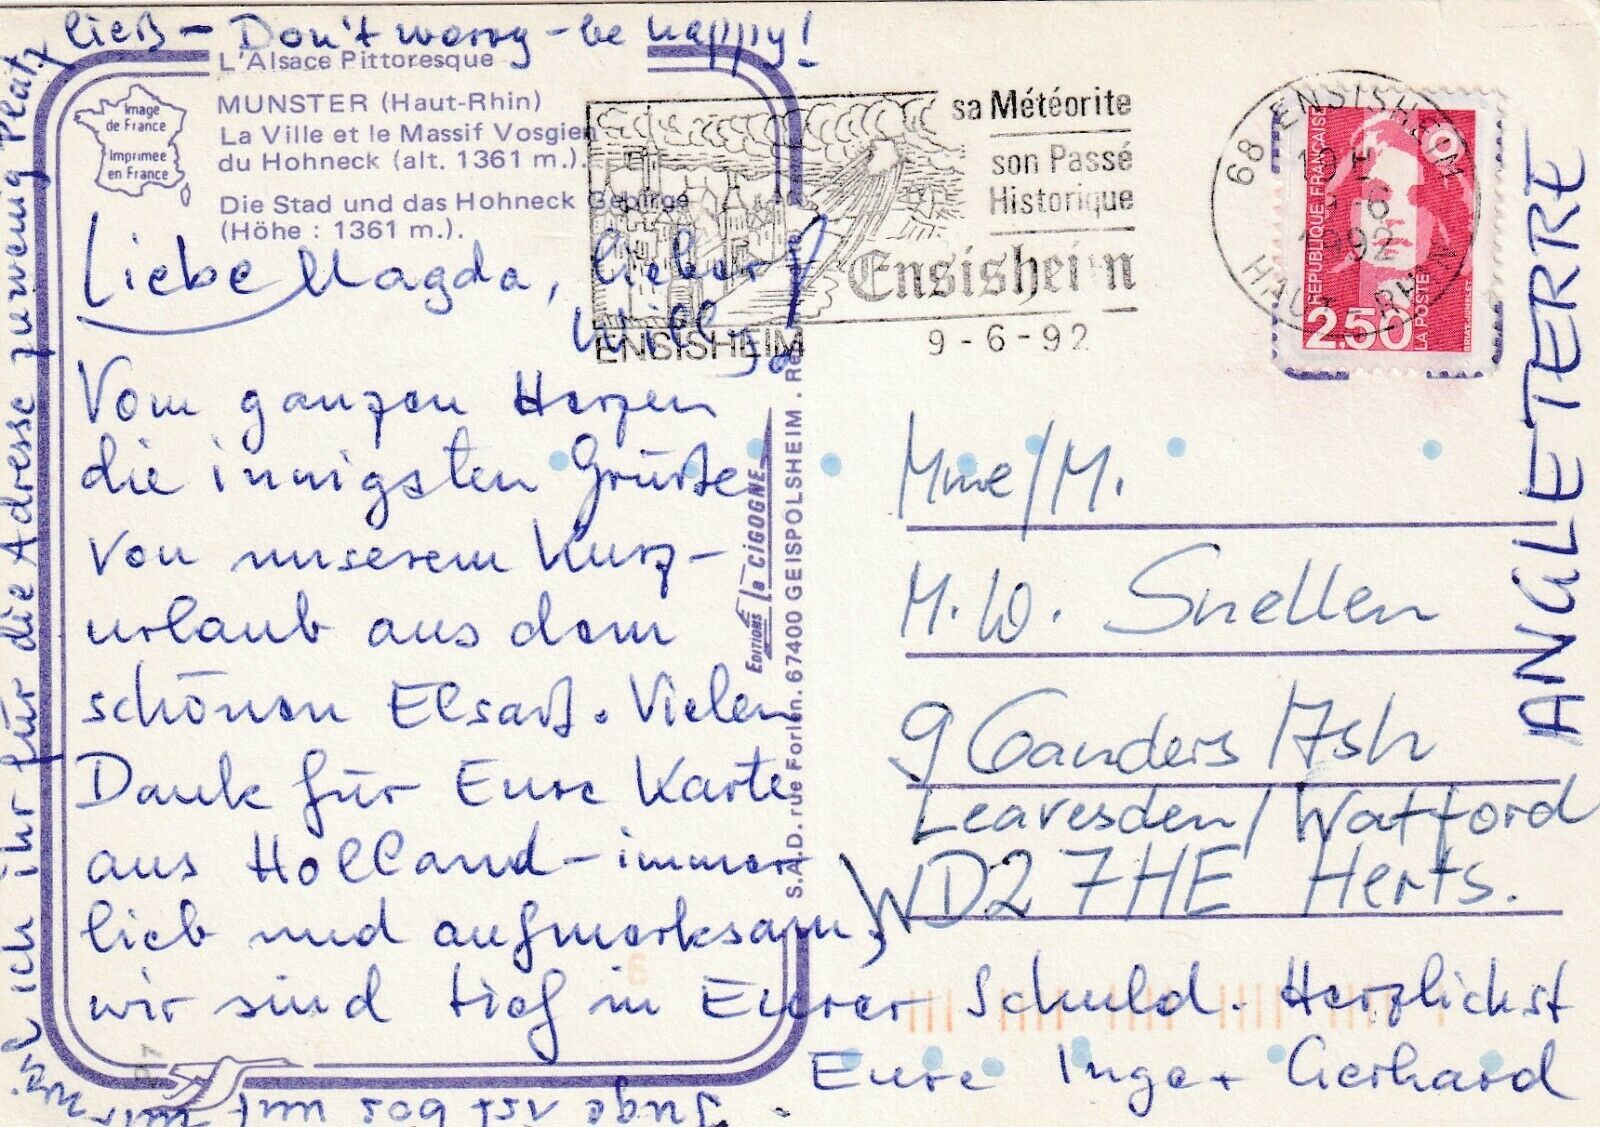 L'Alsace Pittoresque
Image
de France
Imprimée
en France
MUNSTER (Haut-Rhin)
La Ville et le Massif Vosgien
du Hohneck (alt. 1361 m.).
Die Stad und das Hohneck Gebirge
(Höhe : 1361 m.).
Liebe Magda, lieber
Willy!
Vom ganzen Herzen
die innigsten Grüße
von unserem Kurz-
urlaub aus dem
schönen Elsaß. Vielen
Dank für Eure Karte
aus Holland - immer
lieb und aufmerksam,
wir sind tief in Eurer Schuld. Herzlichst
Eure Inge + Gerhard
Inge ist bös mit mir,
weil ich ihr für die Adresse zuwenig Platz
ließ - Don't worry - be happy!
EDITIONS La CIGOGNE
S.A.D. rue Forlen. 67400 GEISPOLSHEIM.
sa Météorite
son Passé
Historique
Ensisheim
ENSISHEIM
9-6-92
68 ENSISHEIM
9-6
1992
HAUT-RHIN
REPUBLIQUE FRANÇAISE
2.50
LA POSTE
Mme/M.
M.W. Snellen
9 Ganders Ash
Leavesden/Watford
WD2 7HE Herts.
ANGLETERRE